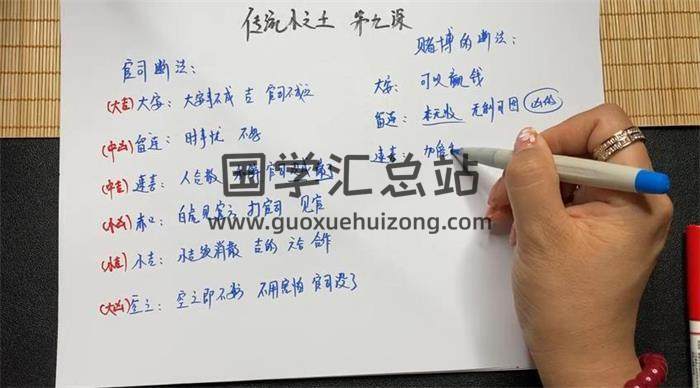 传统小六壬 第九课
官司断法：
(大吉) 大安：大安事不成 吉 官司不成立
(中凶) 留连：时事忧 不安
(中吉) 速喜：人己散 官司
(小凶) 赤口：白虎见官 打官司 见官
(小吉) 小吉：消散 吉的 合作
(大凶) 空亡：空亡即不 不用害怕 官司没了
赌博的断法：
大安：可以赢钱
留连：本无收 无利可图
速喜：加倍
国学汇总站
www.guoxuehuizong.com